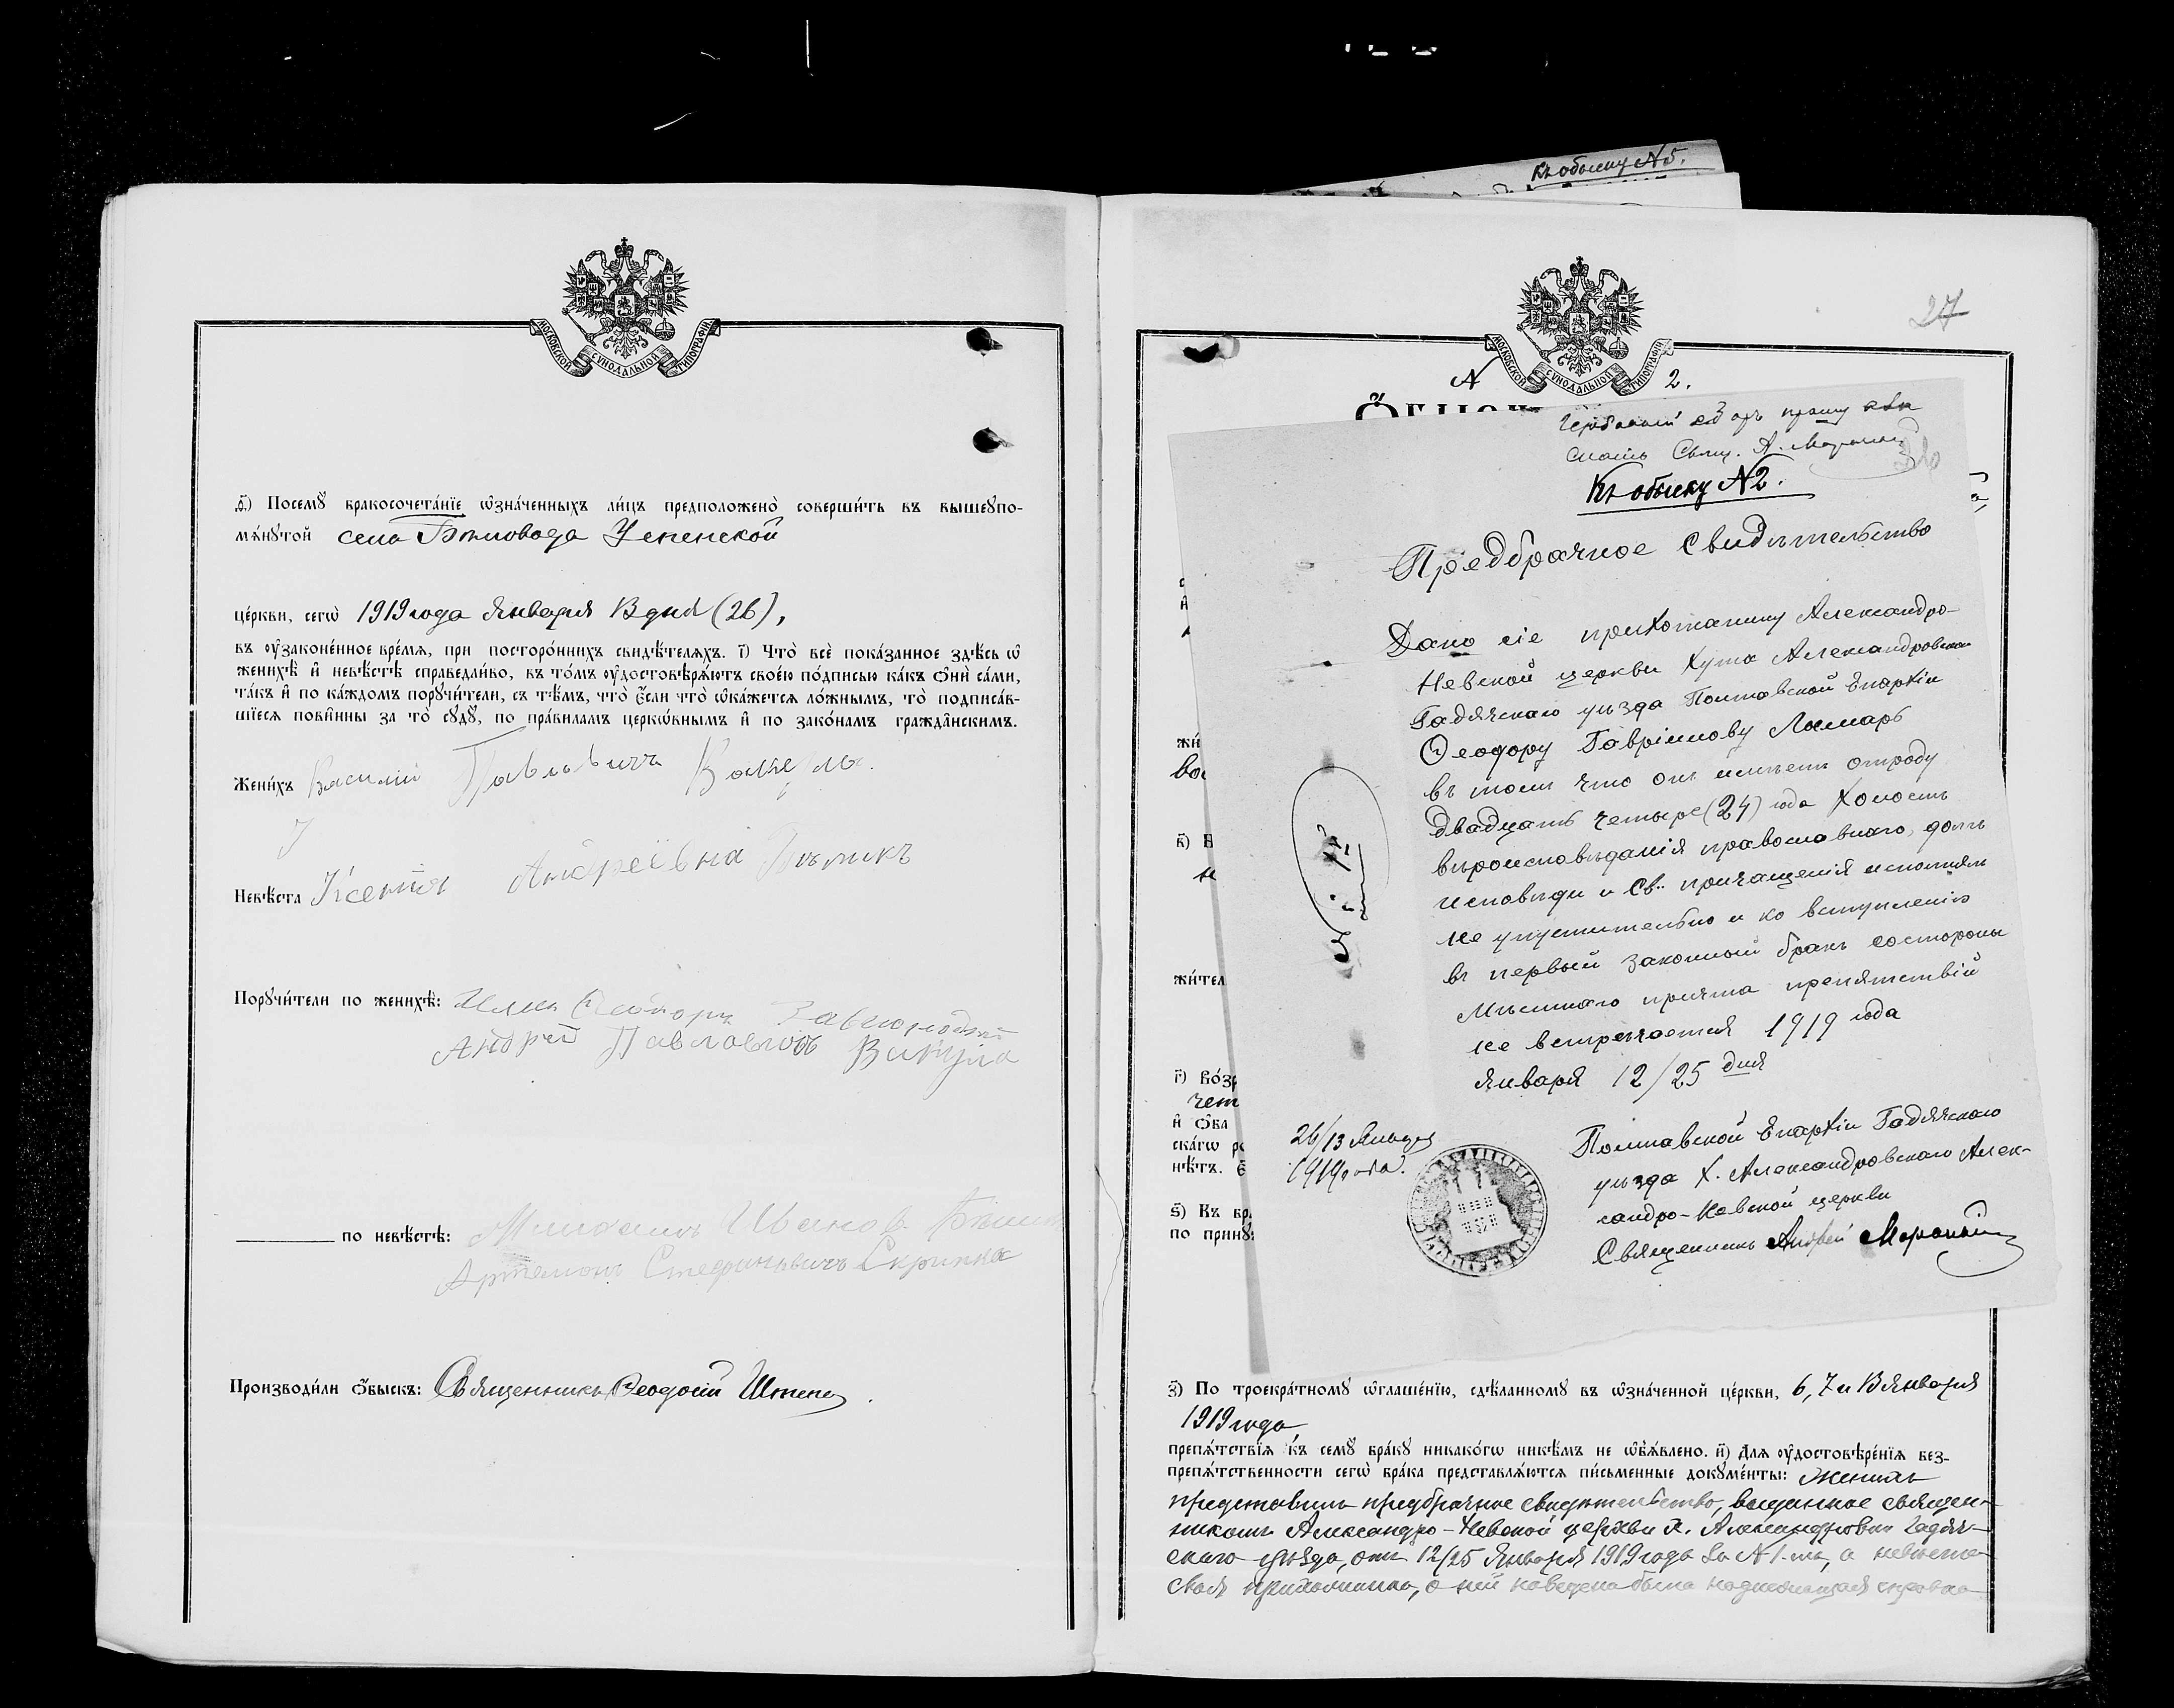 Къ обыску №5.
МОСКОВСКОЙ СѴНОДАЛЬНОЙ ТИПОГРАФІИ
д҃і) Посемꙋ̀ бракосочета́нїе ѡ҆зна́ченныхъ ли́цъ предположено̀ соверши́ть въ вышеꙋпо-
мѧ́нꙋтой села Бѣловода Успенской
це́ркви, сегѡ̀ 1919 года Января 13 дня (26),
въ ᲂу҆законе́нное вре́мѧ, при посторо́ннихъ свидѣ́телѧхъ. і҃) Что̀ всѐ пока́занное здѣ́сь ѡ҆
женихѣ̀ и҆ невѣ́стѣ справедли́во, въ то́мъ ᲂу҆достовѣрѧ́ютъ свое́ю по́дписью ка́къ ѻ҆нѝ са́ми,
та́къ и҆ по ка́ждомъ порꙋчи́тели, съ тѣ́мъ, что̀ є҆́сли что̀ ѡ҆ка́жетсѧ ло́жнымъ, то̀ подписа́в-
шїесѧ пови́нны за то̀ сꙋдꙋ̀, по пра́виламъ церко́внымъ и҆ по зако́намъ гражда́нскимъ.
Жени́хъ Василий Павловичъ
Невѣ́ста Ксенія Андреївна
Порꙋчи́тели по женихѣ̀:
Андрей Павловичъ Викула
по невѣ́стѣ: Иванов
Артемонъ Стефановичъ Скрипка
Производи́ли ѻ҆́быскъ: Священникъ Ѳеодосій
27
МОСКОВСКОЙ СѴНОДАЛЬНОЙ ТИПОГРАФІИ
№ 2.
Гербовый сборъ прошу
Свящ. А.
Къ обыску №2.
Предбрачное Свидѣтельство
Дано сіе прихожанину Александро-
Невской церкви Хут. Александровскаго
Гадячскаго уѣзда Полтавской Епархіи
Ѳеодору Гаврілову Лымарь
въ томъ что онъ имѣетъ отроду
двадцать четыре (24) года холостъ
вѣроисповѣданія православнаго, долгъ
исповѣди и Св. причащенія исполнялъ
не упустительно и ко вступленію
въ первый законный бракъ состороны
Мѣстнаго причта препятствій
не встречается 1919 года
Января 12/25 дня
26/13 Января
1919 года.
Полтавской Епархіи Гадячскаго
уѣзда Х. Александровскаго Алек-
сандро-Невской церкви
Священникъ Андрей
з҃) По троекра́тномꙋ ѡ҆глаше́нїю, сдѣ́ланномꙋ въ ѡ҆зна́ченной це́ркви, 6, 7 и 13 Января
1919 года
препѧ́тствїѧ къ семꙋ̀ бра́кꙋ никако́гѡ никѣ́мъ не ѡ҆б̾ѧ́влено. и҃) Длѧ ᲂу҆достовѣре́нїѧ без-
препѧ́тственности сегѡ̀ бра́ка представлѧ́ютсѧ пи́сьменные докꙋме́нты: женихъ
представилъ предбрачное свидѣтельство, выданное священ-
никомъ Александро-Невской церкви х. Александровки Гадяч-
скаго уѣзда, отъ 12/25 Января 1919 года за №1-мъ, а невѣста
своя прихожанка, о ней наведена была надлежащая справка